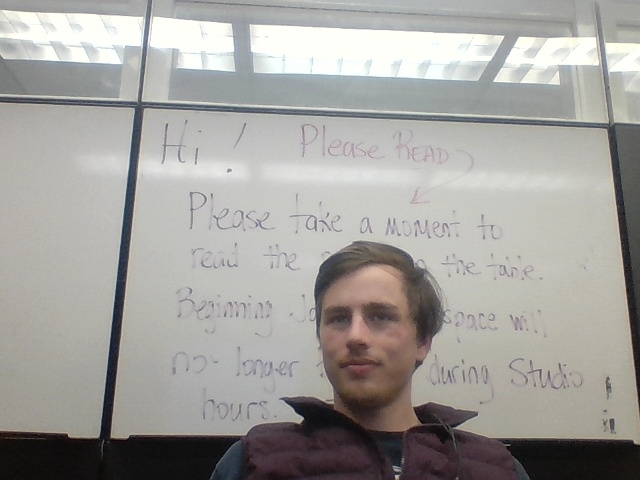 Hi! Please READ
Please take a moment to
read the the table.
Beginning space will
no longer during Studio
hours.